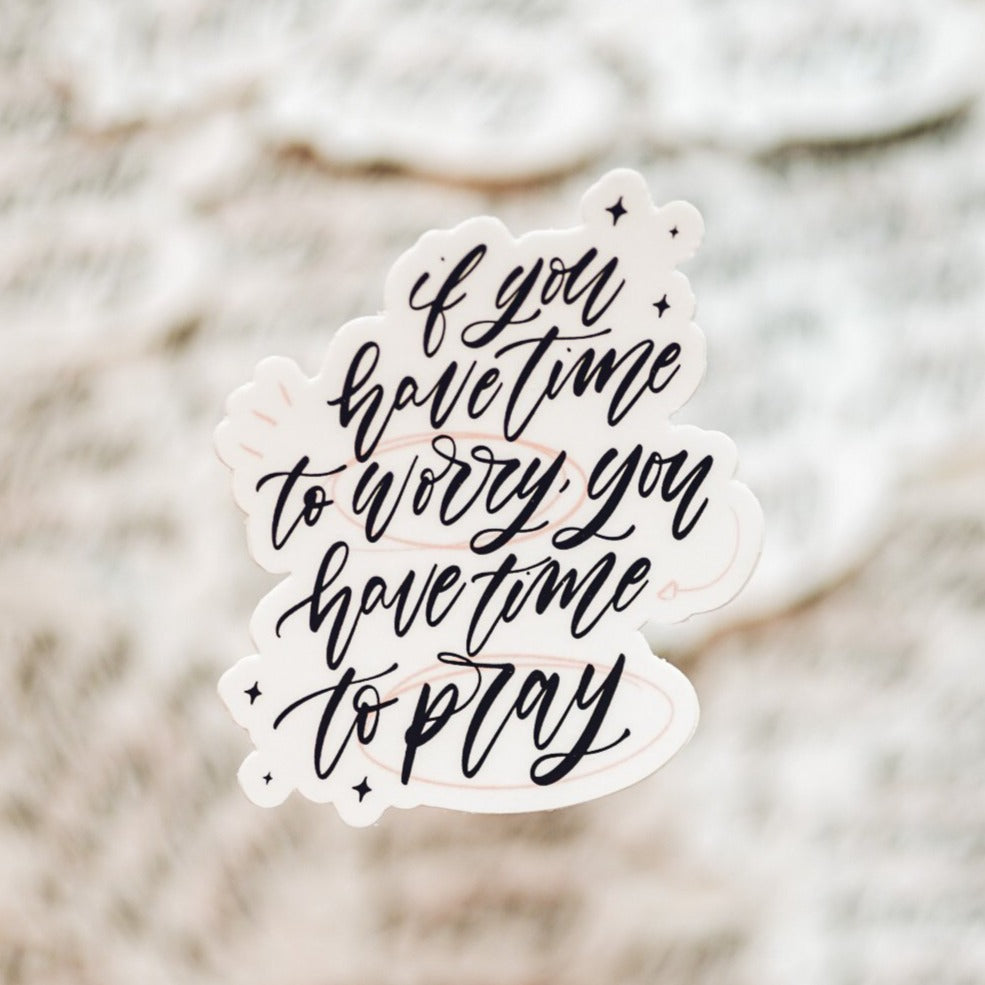 if you
have time
to worry, you
have time
to pray